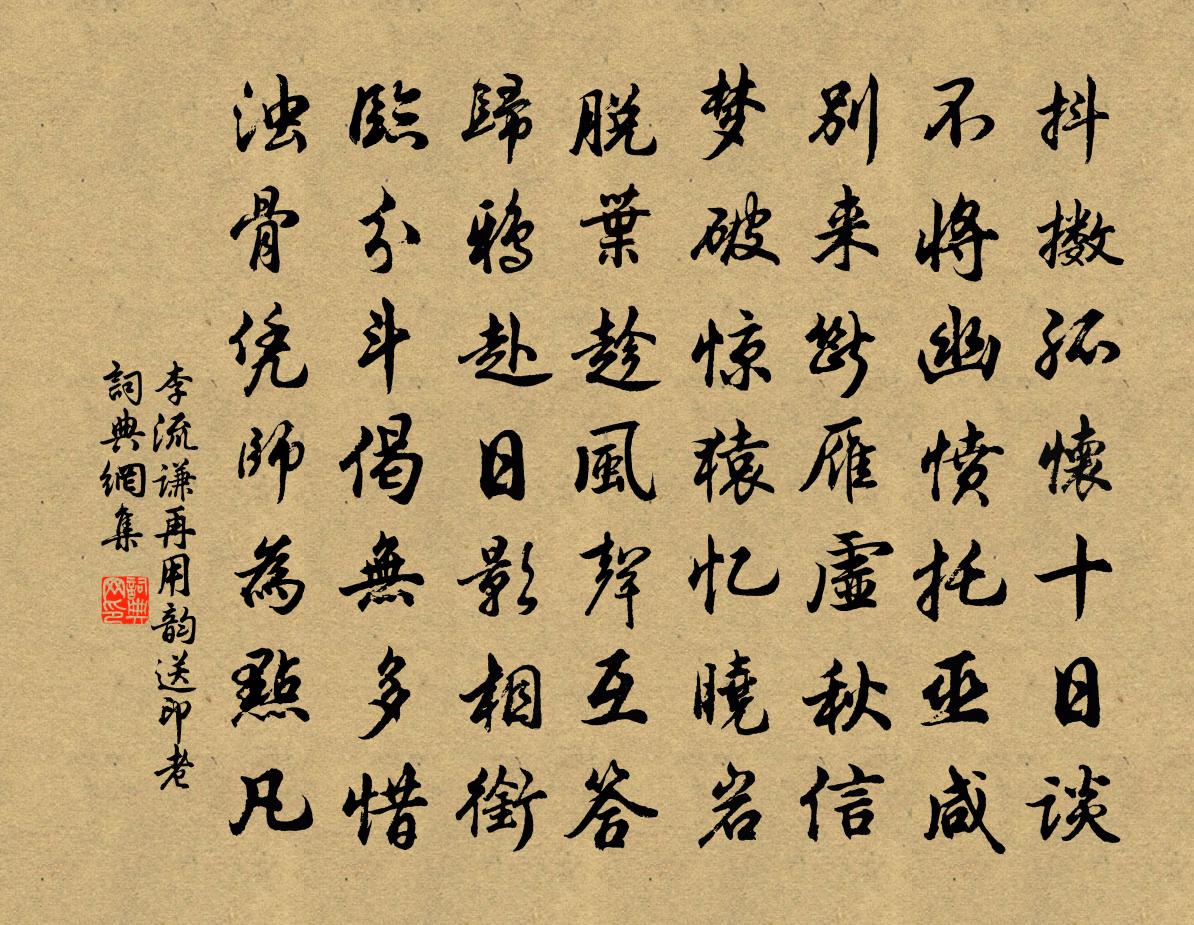 抖擞孤懷十日談
不將幽愤托巫咸
别来斷雁虛秋信
梦破惊猿忆曉岩
脱葉趁風聲互答
歸鴉赴日影相銜
臨分斗偈無多惜
浊骨凭師為點凡
李流谦再用韵送印老
詞典網集
詞典网印